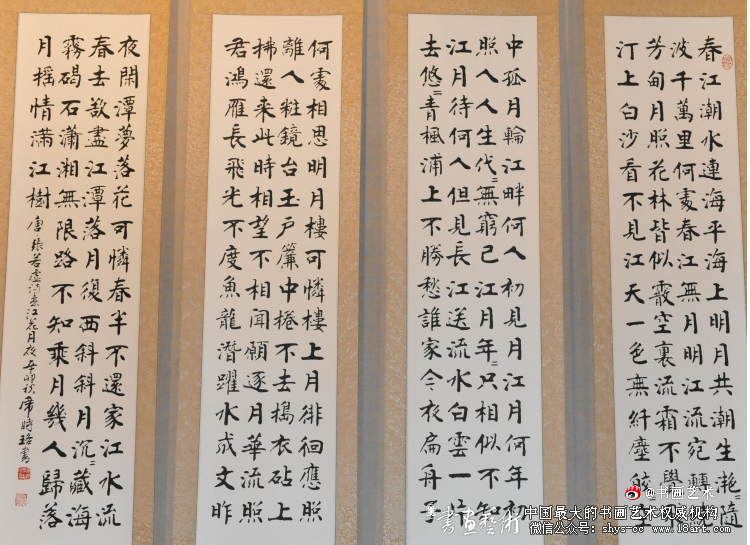 春江潮水連海平海上明月共潮生灧〻隨
波千萬里何處春江無月明江流宛轉
芳甸月照花林皆似霰空裏流霜不覺
汀上白沙看不見江天一色無纖塵皎
中孤月輪江畔何人初見月江月何年初
照人人生代〻無窮已江月年〻只相似不知
江月待何人但見長江送流水白雲一片
去悠〻青楓浦上不勝愁誰家今夜扁舟子
何處相思明月樓可憐樓上月徘徊應照
離人粧鏡台玉戶簾中捲不去搗衣砧上
拂還來此時相望不相聞願逐月華流照
君鴻雁長飛光不度魚龍潛躍水成文昨
夜閑潭夢落花可憐春半不還家江水流
春去欲盡江潭落月復西斜斜月沉〻藏海
霧碣石瀟湘無限路不知乘月幾人歸落
月搖情滿江樹 唐張若虛詩春江花月夜辛卯秋席時珞書
@书画艺术
書畫藝術 中国最大的书画艺术权威机构
微信公众号：shys-cc www.18art.com